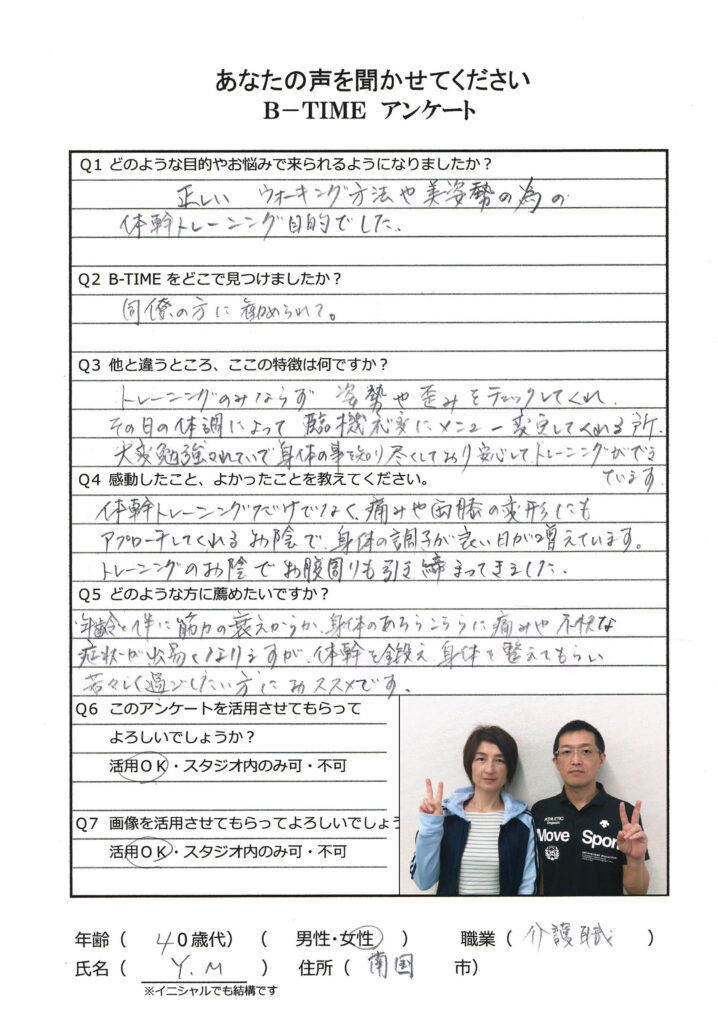 あなたの声を聞かせてください
B－TIME アンケート
Q1 どのような目的やお悩みで来られるようになりましたか？
正しい ウォーキング方法や美姿勢の為の
体幹トレーニング目的でした。
Q2 B-TIME をどこで見つけましたか？
同僚の方に勧められて。
Q3 他と違うところ、ここの特徴は何ですか？
トレーニングのみならず 姿勢や歪みをチェックしてくれ、
その日の体調によって 臨機応変にメニュー変更してくれる所。
大変勉強されていて身体の事を知り尽くしており安心してトレーニングができ
ています。
Q4 感動したこと、よかったことを教えてください。
体幹トレーニングだけでなく、痛みや両膝の変形にも
アプローチしてくれるお陰で、身体の調子が良い日が増えています。
トレーニングのお陰でお腹周りも引き締まってきました。
Q5 どのような方に薦めたいですか？
年齢と伴に筋力の衰えからか、身体のあちらこちらに痛みや不快な
症状が出易くなりますが、体幹を鍛え身体を整えてもらい
若々しく過ごしたい方におススメです。
Q6 このアンケートを活用させてもらって
よろしいでしょうか？
活用ＯＫ・スタジオ内のみ可・不可
Q7 画像を活用させてもらってよろしいでしょう
活用ＯＫ・スタジオ内のみ可・不可
ATHLETIC
Move Spor
年齢（ 40歳代）（ 男性・女性 ） 職業（ 介護職 ）
氏名（ Y.M ） 住所（ 南国 市）
※イニシャルでも結構です